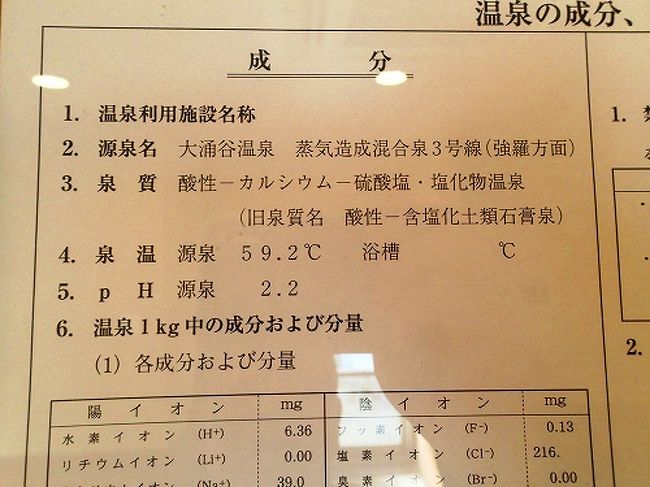 温泉の成分、
成 分
1. 温泉利用施設名称
2. 源泉名 大涌谷温泉 蒸気造成混合泉3号線(強羅方面)
3. 泉 質 酸性－カルシウム－硫酸塩・塩化物温泉
(旧泉質名 酸性－含塩化土類石膏泉)
4. 泉 温 源泉 59.2℃ 浴槽 ℃
5. p H 源泉 2.2
6. 温泉1kg中の成分および分量
(1) 各成分および分量
陽イオン mg 陰イオン mg
水素イオン (H⁺) 6.36 フッ素イオン (F⁻) 0.13
リチウムイオン (Li⁺) 0.00 塩素イオン (Cl⁻) 216.
(Na⁺) 39.0 臭素イオン (Br⁻) 0.00
1.
2.